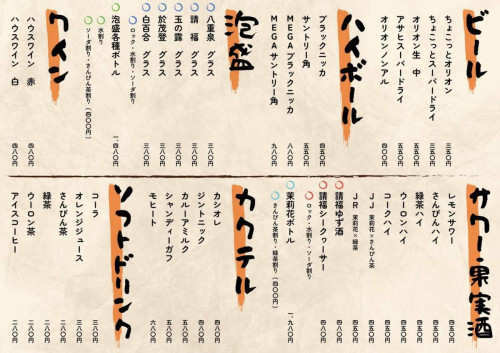 ビール
ちょこっとオリオン 三五〇円
ちょこっとスーパードライ 三五〇円
オリオン生 中 五五〇円
アサヒスーパードライ 五五〇円
オリオンノンアル 四〇〇円
ハイボール
ブラックニッカ 四五〇円
サントリー角 五五〇円
MEGAブラックニッカ 八八〇円
MEGAサントリー角 九八〇円
泡盛
八重泉 グラス 三八〇円
請福 グラス 三八〇円
玉の露 グラス 三八〇円
於茂登 グラス 三八〇円
白百合 グラス 三八〇円
ロック・水割り・ソーダ割り
泡盛各種ボトル 一、四八〇円
水割り
ソーダ割り・さんぴん茶割り(四〇〇円)
ワイン
ハウスワイン 赤 四八〇円
ハウスワイン 白 四八〇円
サワー・果実酒
レモンサワー 四五〇円
さんぴんハイ 四五〇円
緑茶ハイ 四五〇円
ウーロンハイ 四五〇円
コークハイ 四五〇円
JJ 茉莉花×さんぴん茶 五五〇円
JR 茉莉花×緑茶 五五〇円
請福ゆず酒 五五〇円
請福シークヮーサー 五五〇円
ロック・水割り・ソーダ割り
茉莉花ボトル 一、九八〇円
さんぴん茶割り・緑茶割り(四〇〇円)
カクテル
カシオレ 四八〇円
ジントニック 四八〇円
カルーアミルク 五八〇円
シャンディーガフ 五八〇円
モヒート 六八〇円
ソフトドリンク
コーラ 三八〇円
オレンジジュース 三八〇円
さんぴん茶 二八〇円
緑茶 二八〇円
ウーロン茶 二八〇円
アイスコーヒー 二八〇円